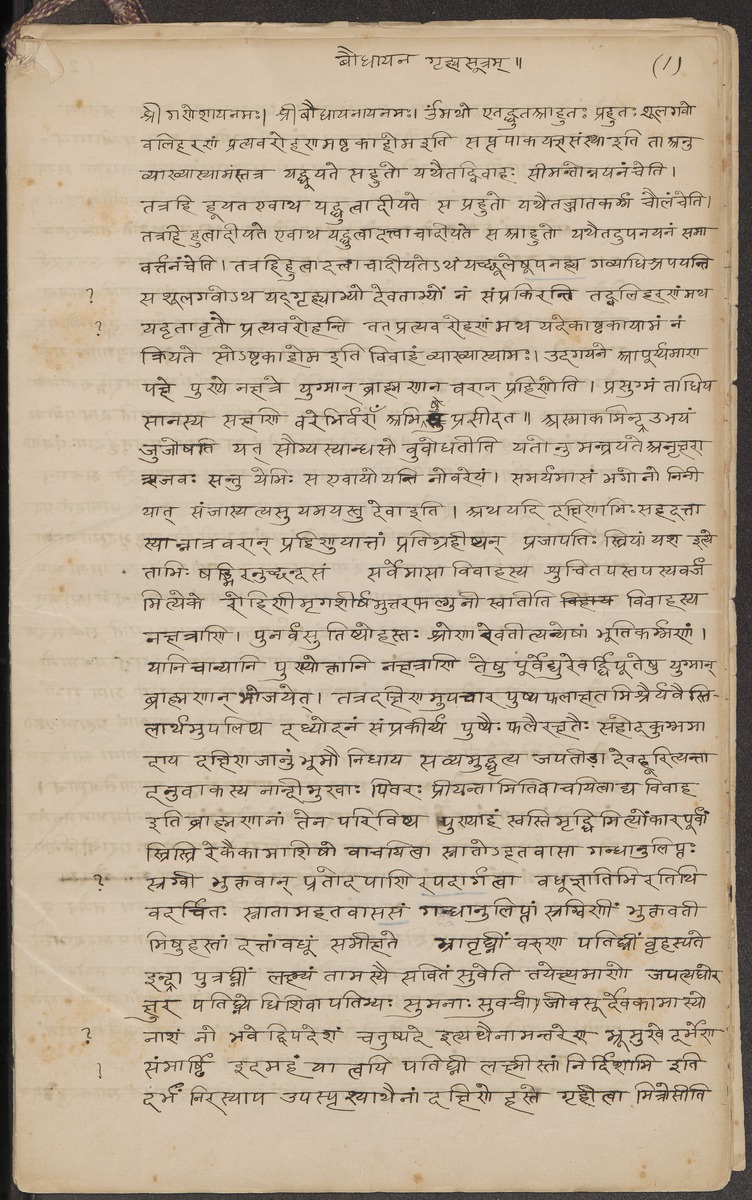 बौधायन गृह्यसूत्रम् ॥ (1)
श्रीगणेशायनमः। श्रीबौधायनायनमः। उंमथो एतद्धुतआहुतः प्रहुतः शूलगवो
वलिहरणं प्रत्यवरोहणमष्टकाहोम इति सप्त पाकयज्ञसंस्था इति ता अनु
व्याख्यास्यामंस्तत्र यद्धूयते सहुतो यथैतद्विवाहः सीमन्तोन्नयनंचेति।
तत्रहि हूयत एवाथ यद्धुत्वादीयते स प्रहुतो यथैतज्जातकर्म चौलंचेति।
तत्रहि हुत्वादीयंते एवाथ यद्धुत्वादत्वाचादीयते स आहुतो यथैतदुपनयनं समा
वर्त्तनंचेति। तत्रहिहुत्वादत्वा चादीयतेऽथंयच्छूलेषूपनह्य गव्याधिश्रपयन्ति
? स शूलगवोऽथ यद्गृह्याभ्यो देवताभ्यों नं संप्रकिरन्ति तद्वलिहरणंमथ
? यदृतावृतौ प्रत्यवरोहन्ति तत्प्रत्यवरोहणंमथ यदेकाष्टकायामंनं
क्रियते सोऽष्टकाहोम इति विवाहं व्याख्यास्यामः। उदगयने आपूर्य्यमाण
पक्षे पुण्ये नक्षत्रे युग्मान् ब्राह्मणान् वरान् प्रहिणोति। प्रसुग्मंताधिय
सानस्य सक्षणि वरेभिर्वराँ अभिषु प्रसीदत॥ अस्माकमिन्द्र उभयं
जुजोषति यत् सौम्यस्यान्धसो वुवोधतीति यतोनुमन्त्रयते अनृक्षरा
ऋजवः सन्तु येभिः स एवायो यन्ति नोवरेयं। समर्यमासं भगो नो निनी
यात् संजास्यत्यसुयमयस्तु देवा इति। अथ यदि दक्षिणाभिः सहदत्ता
स्यान्नात्र वरान् प्रहिणुयात्तां प्रतिग्रहीष्यन् प्रजापतिः स्त्रियां यश इत्ये
ताभिः षड्भिरनुच्छन्दसं सर्वेमासा विवाहस्य शुचितपस्तपस्यवर्जं
मित्येके रोहिणीमृगशीर्षमुत्तरफल्गुनी स्वातीति विवाहस्य
नक्षत्राणि। पुनर्वसु तिष्योहस्तः श्रोणा रेवतीत्यन्येषां भूतिकर्म्मणां।
यानि चान्यानि पुण्योक्तानि नक्षत्राणि तेषु पूर्वेद्युरेवर्द्धिपूतेषु युग्मान्
ब्राह्मणान् भोजयेत्। तत्र दक्षिणमुपचार पुष्पफलाक्षतमिश्रैर्यवैस्ति-
लार्थमुपलिप्य दध्योदनं संप्रकीर्य पुष्पैः फलैरक्षतैः सहोदकुम्भमा
दाय दक्षिणजानुंभूमौ निधाय सव्यमुद्धृत्य जपतीडा देवहूरित्यन्ता
दनुवाकस्य नान्दीमुखाः पितरः प्रीयन्तामितिवाचयित्वाद्य विवाह
इतिब्राह्मणानां तेन परिविष्य पुण्याहं स्वस्तिमृद्धिमित्योंकारपूर्वां
स्त्रिस्त्रिरेकैकामाशिषो वाचयित्वा स्नातोऽहतवासा गन्धानुलिप्तः
? स्रग्वी भुक्तवान् प्रतोदपाणिरपदार्गत्वा वधूज्ञातिभिरतिथि
वदर्चितः स्नातामहतवाससं गन्धानुलिप्तां स्रग्विणीं भुक्तवती
मिषुहस्तां दत्तांवधूं समीक्षते भ्रातृघ्नीं वरुण पतिघ्नीं बृहस्पते
इन्द्रा पुत्रघ्नीं लक्ष्म्यं तामस्यै सवितं सुवेति तयेक्ष्यमाणो जपत्यघोर
क्षुर पतिघ्न्ये धिशिवा पतिभ्यः सुमनाः सुवर्चा। जीवसूर्देवकामा स्यो
? नाशं नो भवेद्विपदेशं चतुष्पदे इत्यथैनामन्तरेण भ्रूसुखे दर्भेण
? संमार्ष्टि इदमहं या त्वयि पतिघ्नी लक्ष्मीस्तां निर्दिशामि इति
दर्भं निरस्याप उपस्पृश्याथैनां दक्षिणे हस्ते गृह्णीत्वा मित्रोसीति